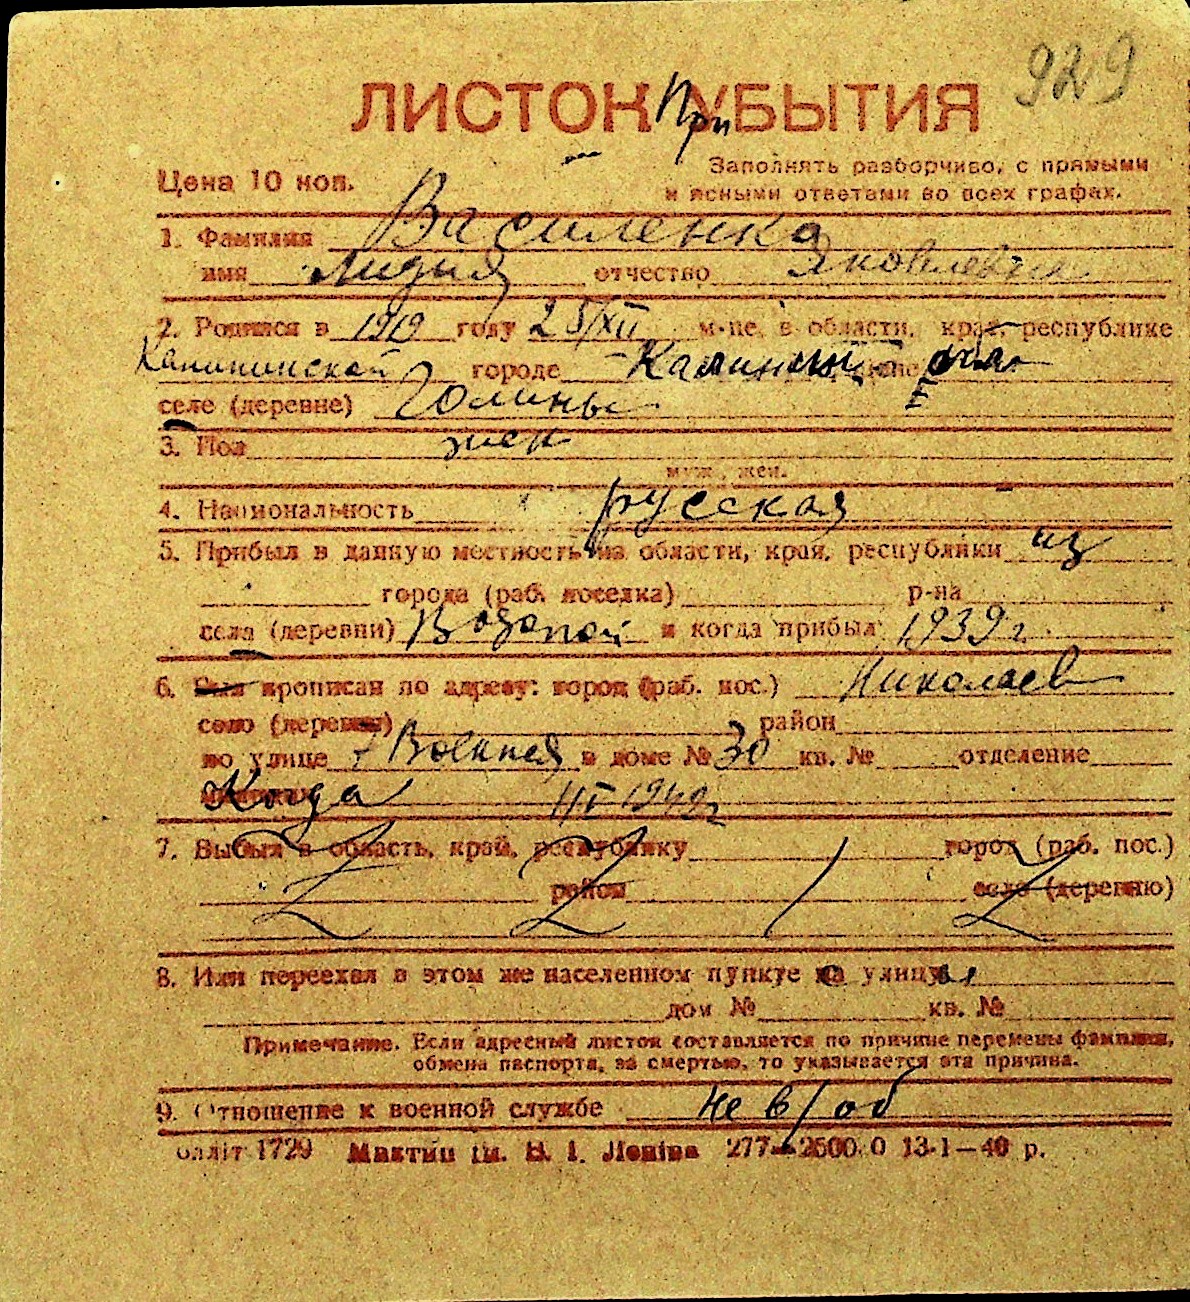 929
ЛИСТОК При УБЫТИЯ
Заполнять разборчиво, с прямыми
Цена 10 коп.
и ясными ответами во всех графах.
1. Фамилия Василенко
имя Лидия отчество Яковлевна
2. Родился в 1919 году 25/XII м-це, в области, крае, республике
Калининской городе Калининск
селе (деревне) Голины
3. Пол жен
муж., жен.
4. Национальность русская
5. Прибыл в данную местность из области, края, республики из
города (раб. поселка) р-на
села (деревни) Водопой и когда прибыл 1939 г.
6. Был прописан по адресу: город (раб. пос.) Николаев
село (деревня) район
по улице Военная в доме № 30 кв. № отделение
Когда 1949г
7. Выбыл в область, край, республику город (раб. пос.)
район село (деревню)
8. Или переехал в этом же населенном пункте улицу
дом № кв. №
Примечание. Если адресный листок составляется по причине перемены фамилии,
обмена паспорта, за смертью, то указывается эта причина.
9. Отношение к военной службе не в/об
1729 ім. В. І. Леніна 277—2500.0 13-1—40 р.